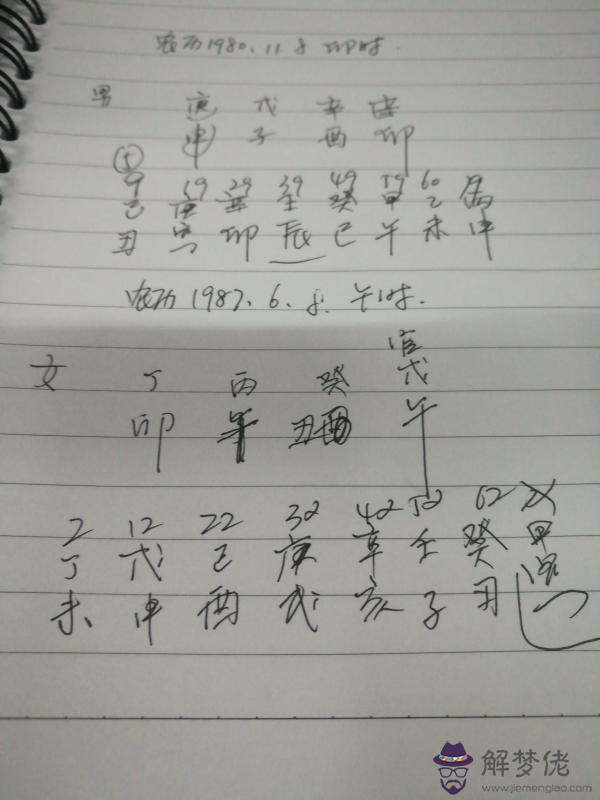 农历1980.11.8 卯时.
男 庚 戊 辛 辛
申 子 酉 卯
⑤
9 19 29 39 49 59 60
己 庚 辛 壬 癸 甲 乙 丙
丑 寅 卯 辰 巳 午 未 申
农历1987.6.8. 午时.
官
女 丁 丙 癸 戊
卯 午 丑 酉 午
2 12 22 32 42 52 62
丁 戊 己 庚 辛 壬 癸 甲
未 申 酉 戌 亥 子 丑 寅
解梦佬
www.jiemenglao.com